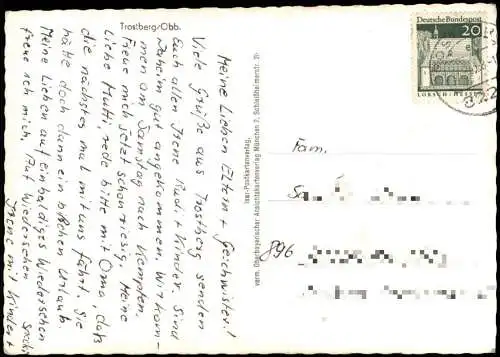 Trostberg/Obb.
Meine Lieben Eltern + Geschwister!
Viele Grüße aus Trostberg senden
Euch allen Irene Rudi + Kinder. Sind
gut angekommen. Wir kom-
men am Samstag nach Kempten.
Freue mich jetzt schon riesig. Meine
Liebe Mutti, rede bitte mit Oma, daß
die nächstes mal mit uns fährt. Sie
hätte doch dann ein bißchen Urlaub
Meine Lieben auf ein baldiges Wiedersehen
freue ich mich. Auf Wiedersehen
Irene mit Kinder +
Isar-Postkartenverlag,
vorm. Oberbayerischer Ansichtskartenverlag München 2, Schleißheimerstr. 21
Deutsche Bundespost
20
LORSCH/HESSEN
Fam.
896